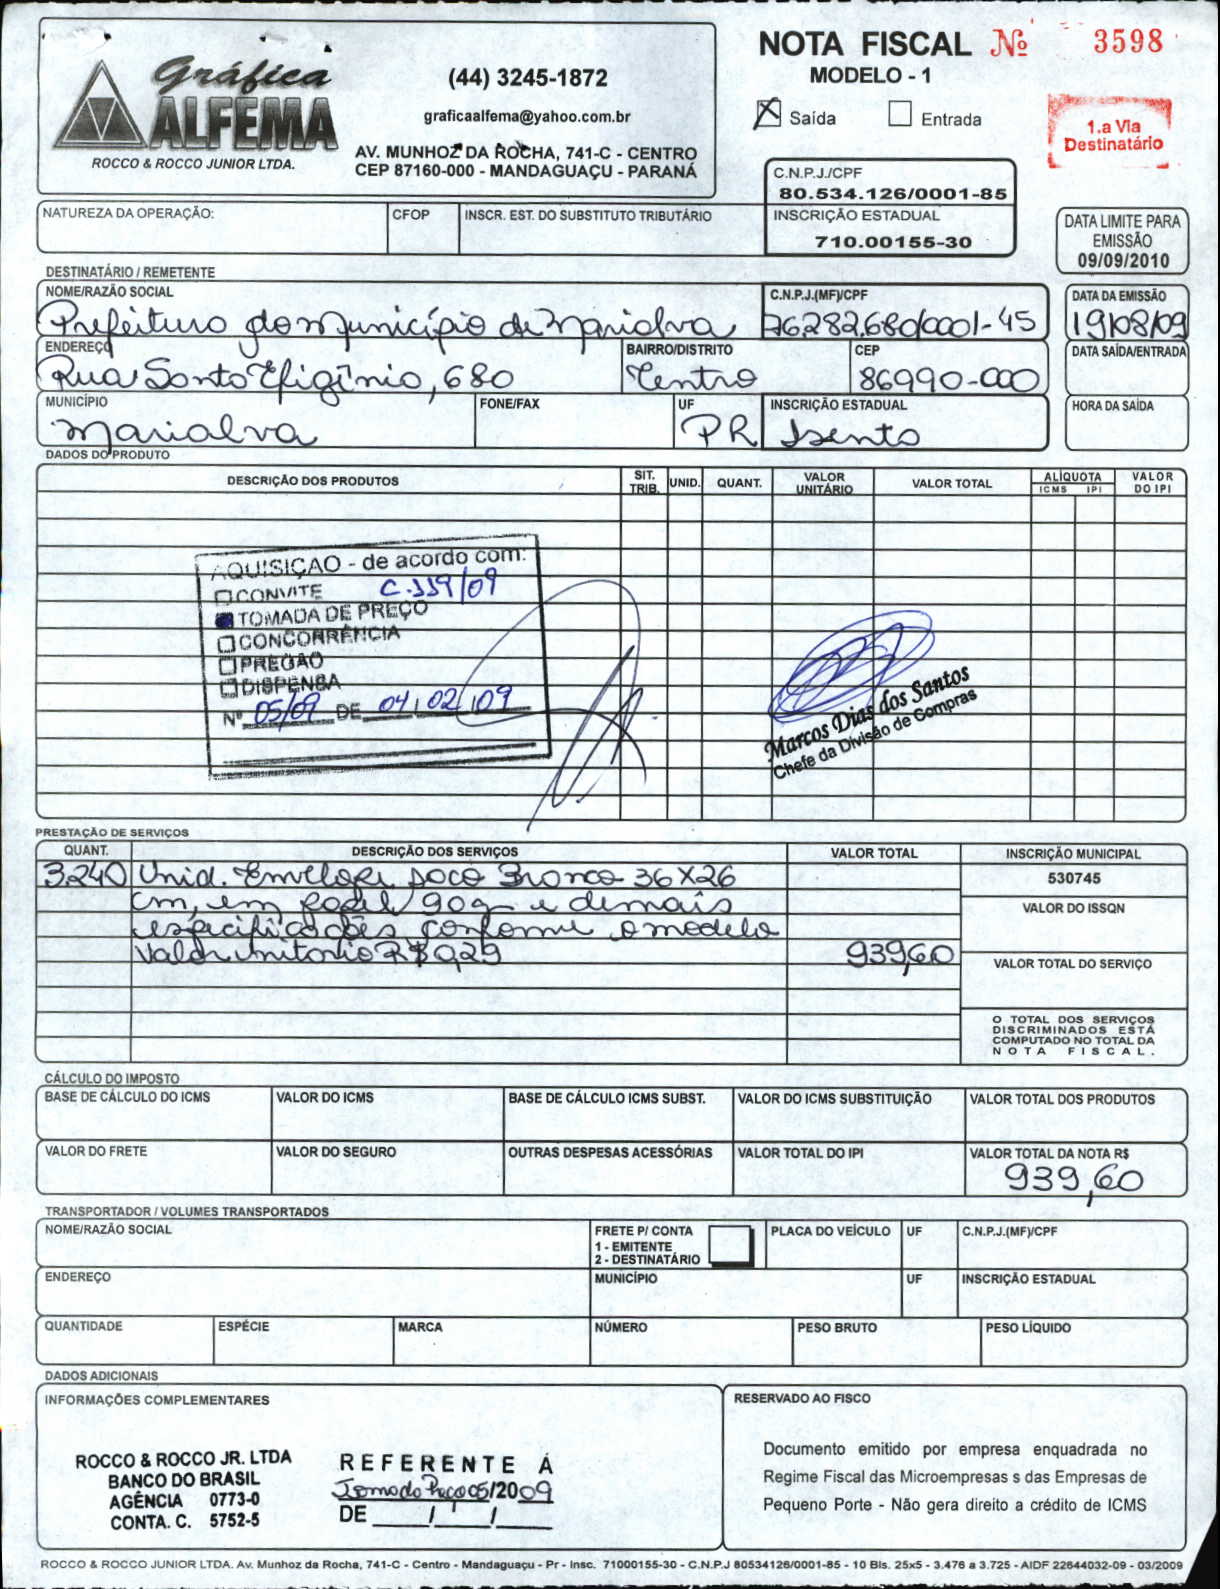 Gráfica
ALFEMA
ROCCO & ROCCO JUNIOR LTDA.
(44) 3245-1872
graficaalfema@yahoo.com.br
AV. MUNHOZ DA ROCHA, 741-C - CENTRO
CEP 87160-000 - MANDAGUAÇU - PARANÁ
NOTA FISCAL Nº 3598
MODELO - 1
X Saída Entrada
1.a Via
Destinatário
C.N.P.J./CPF
80.534.126/0001-85
NATUREZA DA OPERAÇÃO: CFOP INSCR. EST. DO SUBSTITUTO TRIBUTÁRIO INSCRIÇÃO ESTADUAL
710.00155-30
DATA LIMITE PARA
EMISSÃO
09/09/2010
DESTINATÁRIO / REMETENTE
NOME/RAZÃO SOCIAL C.N.P.J.(MF)/CPF DATA DA EMISSÃO
Prefeitura do Município de Marialva 76.282.680/0001-45 19/08/09
ENDEREÇO BAIRRO/DISTRITO CEP DATA SAÍDA/ENTRADA
Rua Santa Efigênia, 680 Centro 86990-000
MUNICÍPIO FONE/FAX UF INSCRIÇÃO ESTADUAL HORA DA SAÍDA
Marialva PR Isento
DADOS DO PRODUTO
DESCRIÇÃO DOS PRODUTOS SIT. TRIB. UNID. QUANT. VALOR UNITÁRIO VALOR TOTAL ALÍQUOTA ICMS IPI VALOR DO IPI
AQUISIÇAO - de acordo com:
CONVITE C.119/09
TOMADA DE PREÇO
CONCORRÊNCIA
PREGAO
DISPENSA
Nº 05/09 DE 04/02/09
Marcos Dias dos Santos
Chefe da Divisão de Compras
PRESTAÇÃO DE SERVIÇOS
QUANT. DESCRIÇÃO DOS SERVIÇOS VALOR TOTAL INSCRIÇÃO MUNICIPAL
530745
3240 Unid. Envelope saco Branco 36X26
cm, em papel 90g e demais
especificações conforme o modelo
Valor unitario R$ 0,29 939,60
VALOR DO ISSQN
VALOR TOTAL DO SERVIÇO
O TOTAL DOS SERVIÇOS
DISCRIMINADOS ESTÁ
COMPUTADO NO TOTAL DA
NOTA FISCAL.
CÁLCULO DO IMPOSTO
BASE DE CÁLCULO DO ICMS VALOR DO ICMS BASE DE CÁLCULO ICMS SUBST. VALOR DO ICMS SUBSTITUIÇÃO VALOR TOTAL DOS PRODUTOS
VALOR DO FRETE VALOR DO SEGURO OUTRAS DESPESAS ACESSÓRIAS VALOR TOTAL DO IPI VALOR TOTAL DA NOTA R$
939,60
TRANSPORTADOR / VOLUMES TRANSPORTADOS
NOME/RAZÃO SOCIAL FRETE P/ CONTA PLACA DO VEÍCULO UF C.N.P.J.(MF)/CPF
1 - EMITENTE
2 - DESTINATÁRIO
ENDEREÇO MUNICÍPIO UF INSCRIÇÃO ESTADUAL
QUANTIDADE ESPÉCIE MARCA NÚMERO PESO BRUTO PESO LÍQUIDO
DADOS ADICIONAIS
INFORMAÇÕES COMPLEMENTARES
ROCCO & ROCCO JR. LTDA
BANCO DO BRASIL
AGÊNCIA 0773-0
CONTA. C. 5752-5
REFERENTE Á
Tomada Preço 05/2009
DE / /
RESERVADO AO FISCO
Documento emitido por empresa enquadrada no
Regime Fiscal das Microempresas s das Empresas de
Pequeno Porte - Não gera direito a crédito de ICMS
ROCCO & ROCCO JUNIOR LTDA. Av. Munhoz da Rocha, 741-C - Centro - Mandaguaçu - Pr - Insc. 71000155-30 - C.N.P.J 80534126/0001-85 - 10 Bls. 25x5 - 3.476 a 3.725 - AIDF 22644032-09 - 03/2009